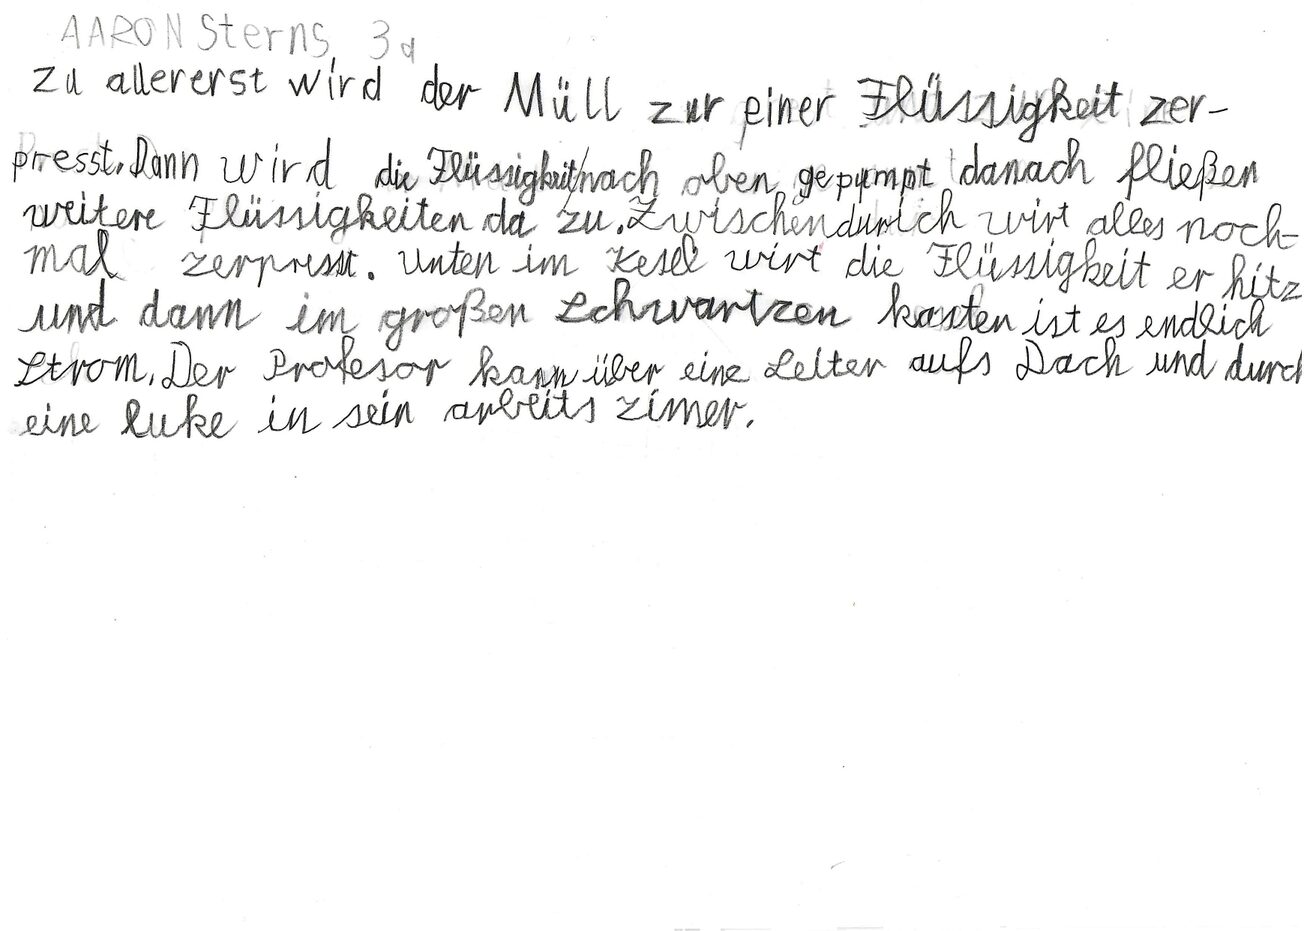 AARON Sterns 3a
zu allererst wird der Müll zur einer Flüssigkeit zer-
presst. Dann wird die Flüssigkeit/nach oben gepumpt danach fließen
weitere Flüssigkeiten da zu. Zwischendurich wirt alles noch-
mal zerpresst. Unten im Kesel wirt die Flüssigkeit er hitz
und dann im großen Schwartzen kasten ist es endlich
Strom. Der Profesor kann über eine Leiter aufs Dach und durch
eine luke in sein arbeits zimer.